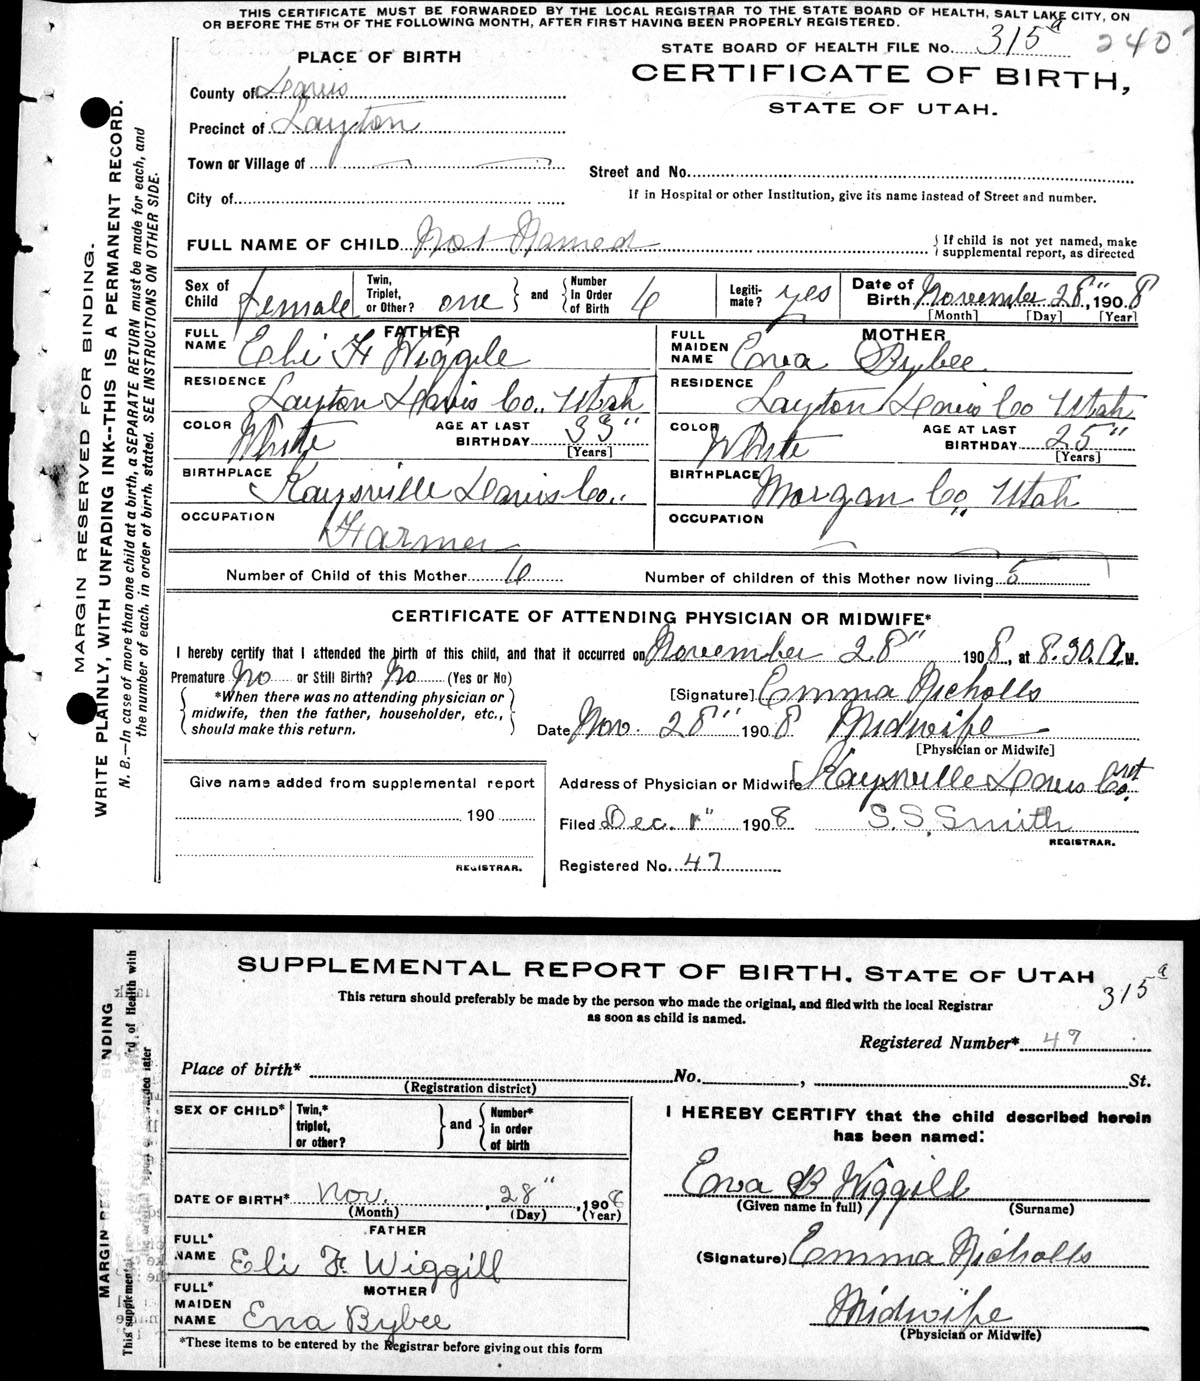 THIS CERTIFICATE MUST BE FORWARDED BY THE LOCAL REGISTRAR TO THE STATE BOARD OF HEALTH, SALT LAKE CITY, ON
OR BEFORE THE 5TH OF THE FOLLOWING MONTH, AFTER FIRST HAVING BEEN PROPERLY REGISTERED.
STATE BOARD OF HEALTH FILE No. 315 a 240
PLACE OF BIRTH
CERTIFICATE OF BIRTH,
STATE OF UTAH.
County of Davis
Precinct of Layton
Town or Village of
Street and No.
City of
If in Hospital or other Institution, give its name instead of Street and number.
FULL NAME OF CHILD Not Named { If child is not yet named, make
supplemental report, as directed
Sex of Child female Twin, Triplet, or Other? one } and { Number in Order of Birth 6 Legiti-mate? yes Date of Birth November 28" 1908
[Month] [Day] [Year]
FATHER MOTHER
FULL NAME Eli F Wiggile FULL MAIDEN NAME Eva Bybee
RESIDENCE Layton Davis Co., Utah RESIDENCE Layton Davis Co Utah
COLOR White AGE AT LAST BIRTHDAY 33" [Years] COLOR White AGE AT LAST BIRTHDAY 25" [Years]
BIRTHPLACE Kaysville Davis Co., BIRTHPLACE Morgan Co., Utah
OCCUPATION Farmer OCCUPATION
Number of Child of this Mother 6 Number of children of this Mother now living 5
CERTIFICATE OF ATTENDING PHYSICIAN OR MIDWIFE*
I hereby certify that I attended the birth of this child, and that it occurred on November 28" 1908, at 8.30 A M.
Premature No or Still Birth? No (Yes or No)
{ *When there was no attending physician or
midwife, then the father, householder, etc.,
should make this return. }
[Signature] Emma Nicholls
Date Nov. 28" 1908 Midwife
[Physician or Midwife]
Give name added from supplemental report
190
REGISTRAR.
Address of Physician or Midwife Kaysville Davis Co. ut
Filed Dec. 1" 1908 S. S. Smith
REGISTRAR.
Registered No. 47
MARGIN RESERVED FOR BINDING.
WRITE PLAINLY, WITH UNFADING INK--THIS IS A PERMANENT RECORD.
N. B.—In case of more than one child at a birth, a SEPARATE RETURN must be made for each, and
the number of each, in order of birth, stated. SEE INSTRUCTIONS ON OTHER SIDE.
SUPPLEMENTAL REPORT OF BIRTH, STATE OF UTAH 315 a
This return should preferably be made by the person who made the original, and filed with the local Registrar
as soon as child is named.
Registered Number* 47
Place of birth* No. , St.
(Registration district)
SEX OF CHILD* Twin,* triplet, or other? } and { Number* in order of birth
DATE OF BIRTH* Nov. 28" 1908
(Month) (Day) (Year)
FATHER
FULL* NAME Eli F. Wiggill
MOTHER
FULL* MAIDEN NAME Eva Bybee
*These items to be entered by the Registrar before giving out this form
I HEREBY CERTIFY that the child described herein
has been named:
Eva B Wiggill
(Given name in full) (Surname)
(Signature) Emma Nicholls
Midwife
(Physician or Midwife)